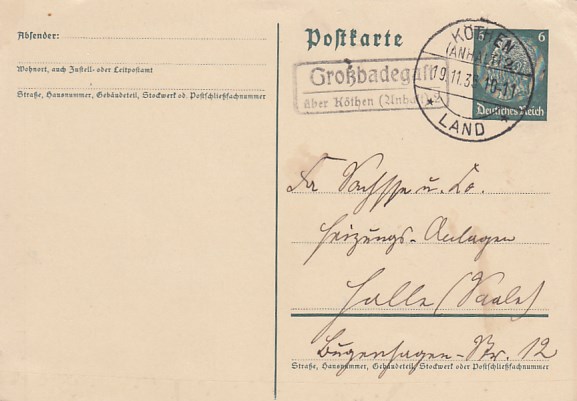 Absender:
Wohnort, auch Zustell- oder Leitpostamt
Straße, Hausnummer, Gebäudeteil, Stockwerk od. Postschließfachnummer
Postkarte
6 6
Deutsches Reich
KÖTHEN
(ANHALT) 2
19.11.35.10-11
* LAND *
Großbadegast
über Köthen (Anhalt) 2
Fa Sachsse u. Co.
Heizungs-Anlagen
Halle (Saale)
Bugenhagen-Str. 12
Straße, Hausnummer, Gebäudeteil, Stockwerk oder Postschließfachnummer